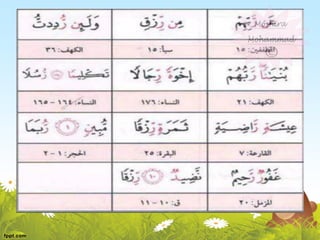 عَن رَّبِّهِمْ مِن رِّزْقِ وَلَئِن رُّدِدتُّ
المطففين: ١٥ سبأ: ١٥ الكهف: ٣٦
بُنْيَٰنًا رَّبُّهُمْ إِخْوَةً رِّجَالًا تَكْلِيمًا رُّسُلًا
الكهف: ٢١ النساء: ١٧٦ النساء: ١٦٤ – ١٦٥
عِيشَةٍ رَّاضِيَةٍ ثَمَرَةٍ رِّزْقًا مُّبِينٍ ١ رُّبَمَا
القارعة: ٧ البقرة: ٢٥ الحجر: ١ – ٢
غَفُورٌ رَّحِيمٌ نَّضِيدٌ ١٠ رِّزْقًا
المزمل: ٢٠ ق: ١٠ – ١١
Mohammad
fppt.com